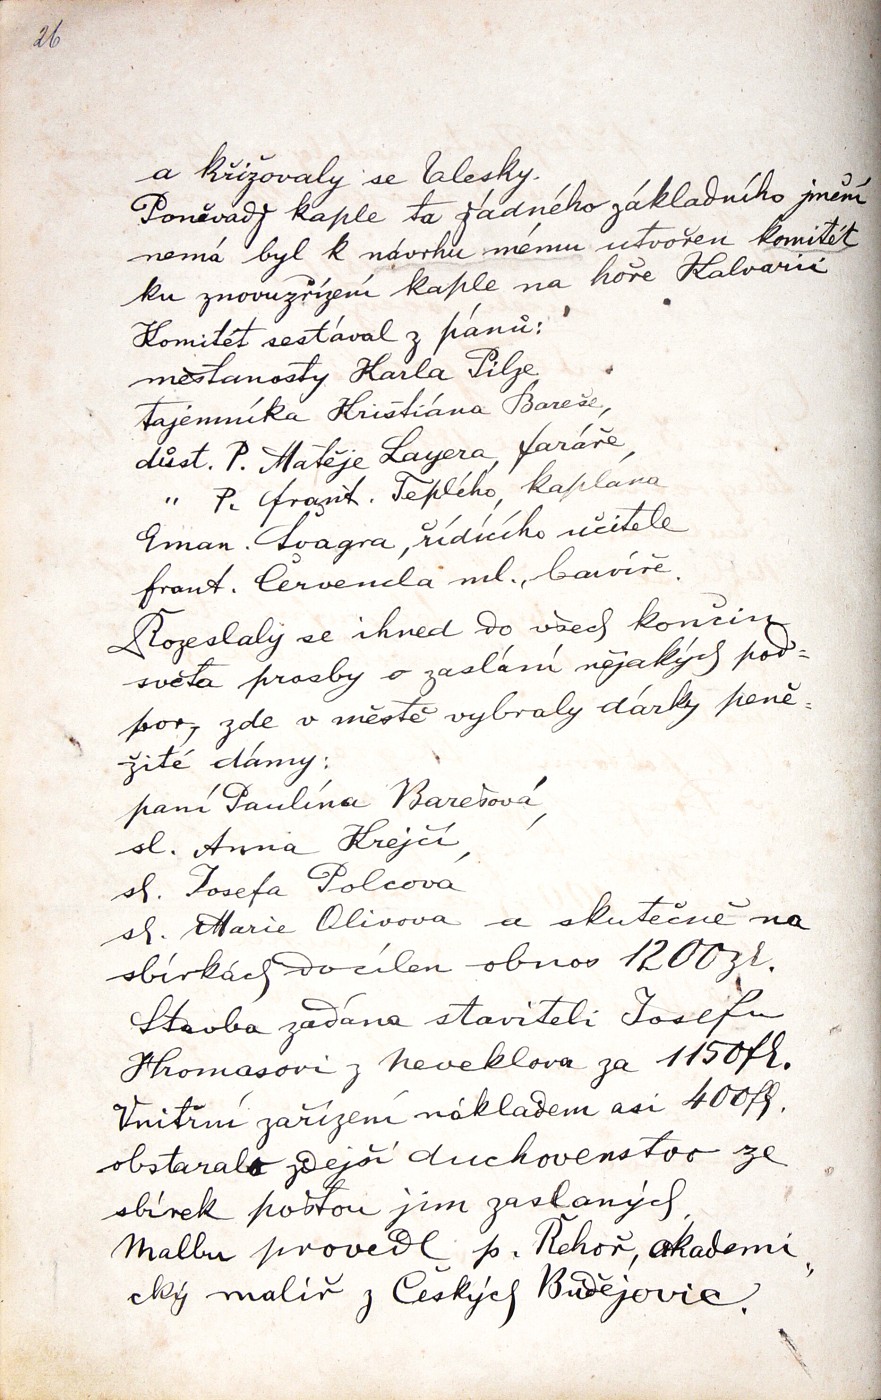 26
a křižovaly se blesky.
Poněvadž kaple ta žádného základního jmění
nemá byl k návrhu mému utvořen komitét
ku znovuzřízení kaple na hoře Kalvarii
Komitét sestával z pánů:
městanosty Karla Pilze
tajemníka Kristiána Bareše,
důst. P. Matěje Layera, faráře,
" P. frant. Teplého, kaplána
Eman. Švagra, řídícího učitele
frant. Červenela ml., barvíře.
Rozeslaly se ihned do všech končin
světa prosby o zaslání nějakých pod=
por, zde v městě vybraly dárky peně=
žité dámy:
paní Paulína Barešová,
sl. Anna Krejčí,
sl. Josefa Polcova,
sl. Marie Olivova a skutečně na
sbírkách docílen obnos 1200 zl.
Stavba zadána staviteli Josefu
Hromasovi z Neveklova za 1150 fl.
Vnitřní zařízení nákladem asi 400 fl.
obstaralo zdejší duchovenstvo ze
sbírek poštou jim zaslaných,
Malbu provedl p. Řehoř, akademi
cký malíř z Českých Budějovic.